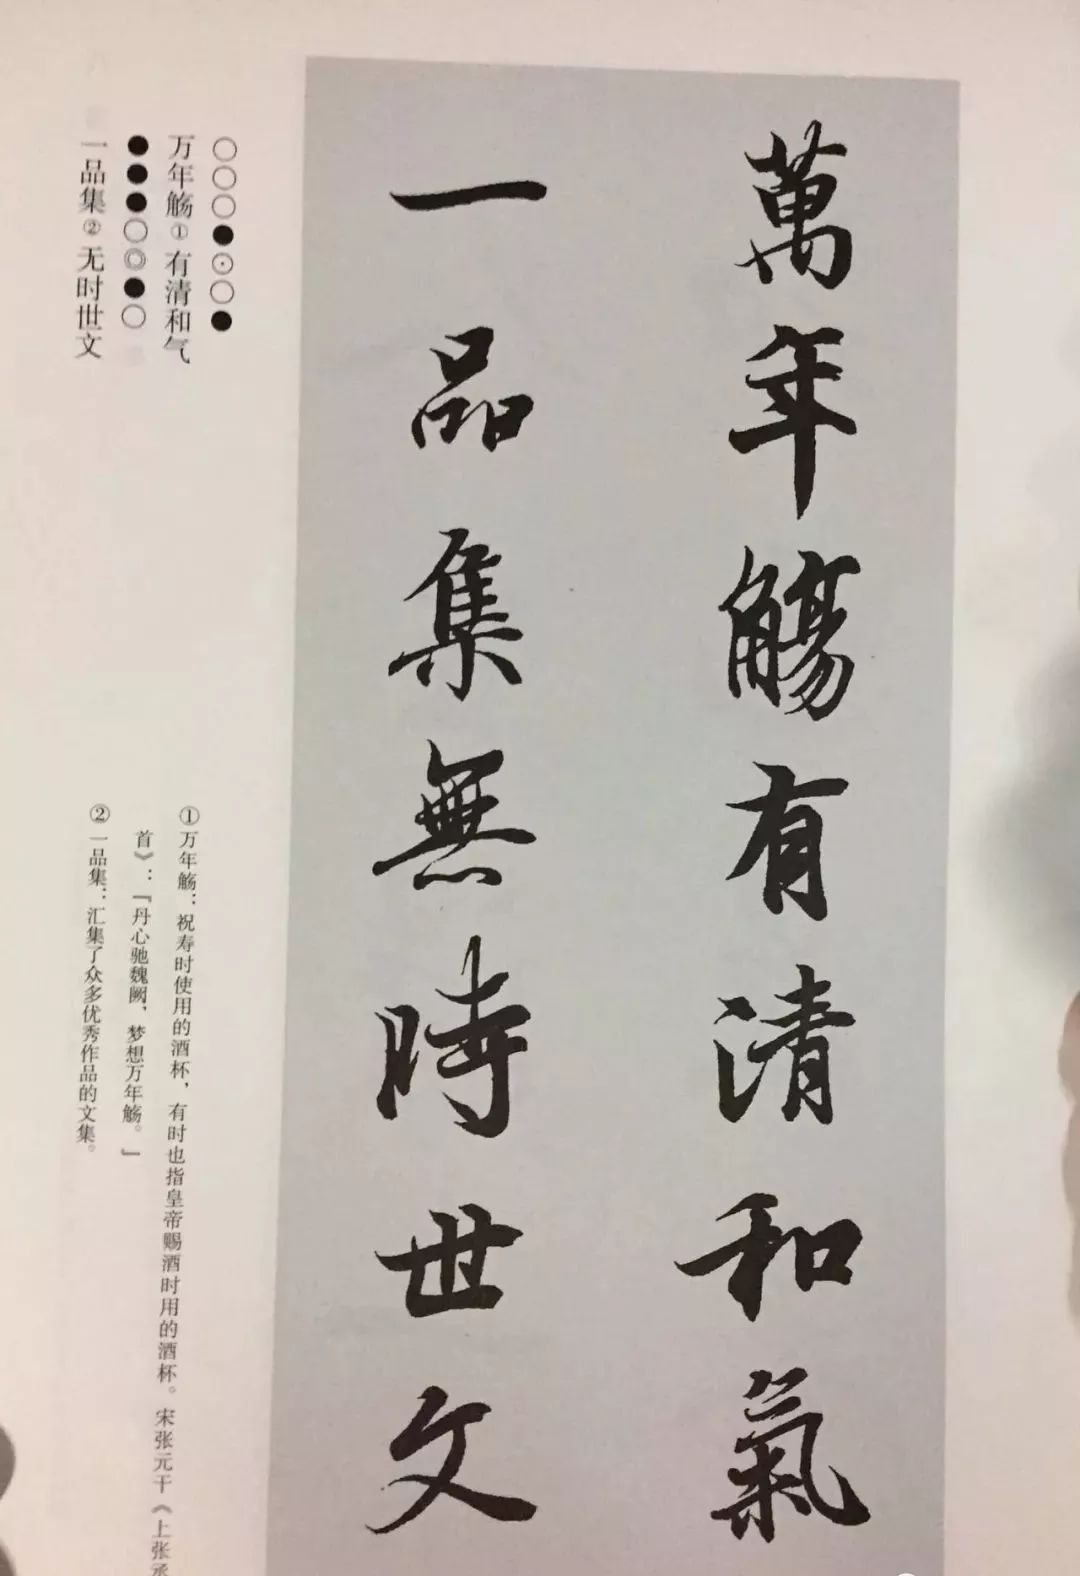 萬年觴有清和氣
一品集無時世文
○○○●⊙○●
万年觞①有清和气
●●●○◎●○
一品集②无时世文
①万年觞：祝寿时使用的酒杯，有时也指皇帝赐酒时用的酒杯。宋张元干《上张丞
首》：『丹心驰魏阙，梦想万年觞。』
②一品集：汇集了众多优秀作品的文集。